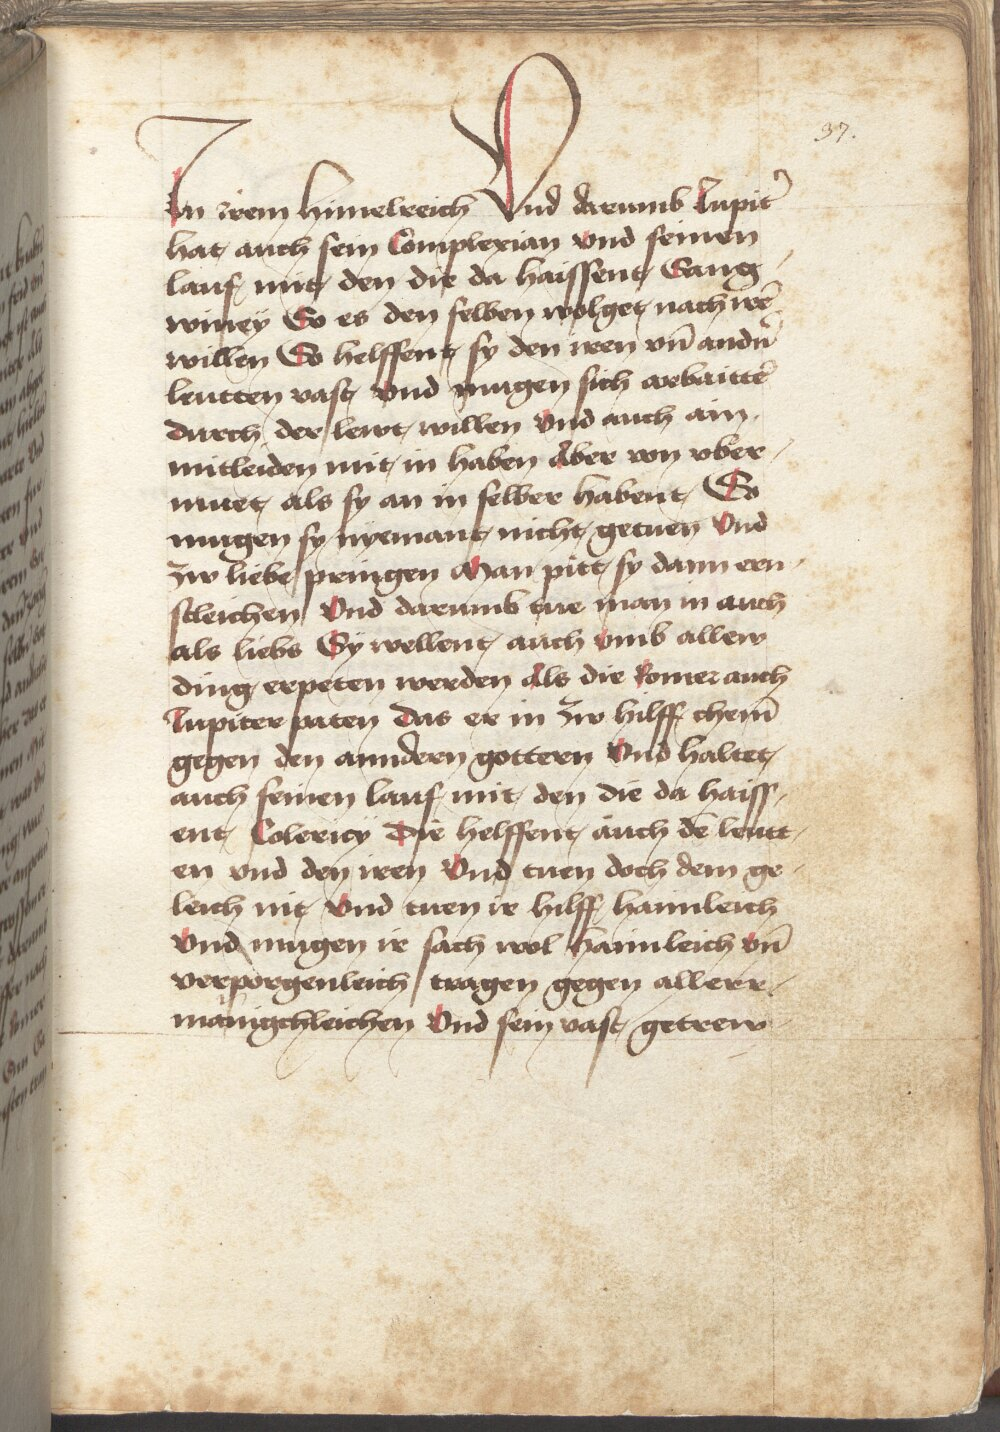 37.
In irem himelreich Vnd darumb Jupit̄
hat auch sein Complexian vnd seinen
lauf mit den die da haissent Sang
winey So es den selben wolget nach irē
willen So helffent sy den iren vn̄ andn̄
leutten vast vnd mugen sich arbaittē
durch der lewt willen Vnd auch ain
mitleiden mit in haben Aber von vber
muet als sy an in selber habent So
mugen sy nyemant nicht getuen Vnd
zw liebe pringen Man pitt sy dann ern
stleichen Vnd darumb tue man in auch
als liebs Sy wellent auch vmb allew
ding erpeten werden Als die Romer auch
Jupiter paten Das er in zw hilff chem̄
gegen den anndern gottern Vnd haltet
auch seinen lauf mit den die da haiss
ent Colericy Die helffent auch dē leutt
en vnd den iren Vnd tuen doch dem ge
leich nit Vnd tuen ir hilff haimleich
Vnd mugen ir sach wol haimleich vn̄
verporgenleich tragen gegen allerr
mänigchleichen Vnd sein vast getrew